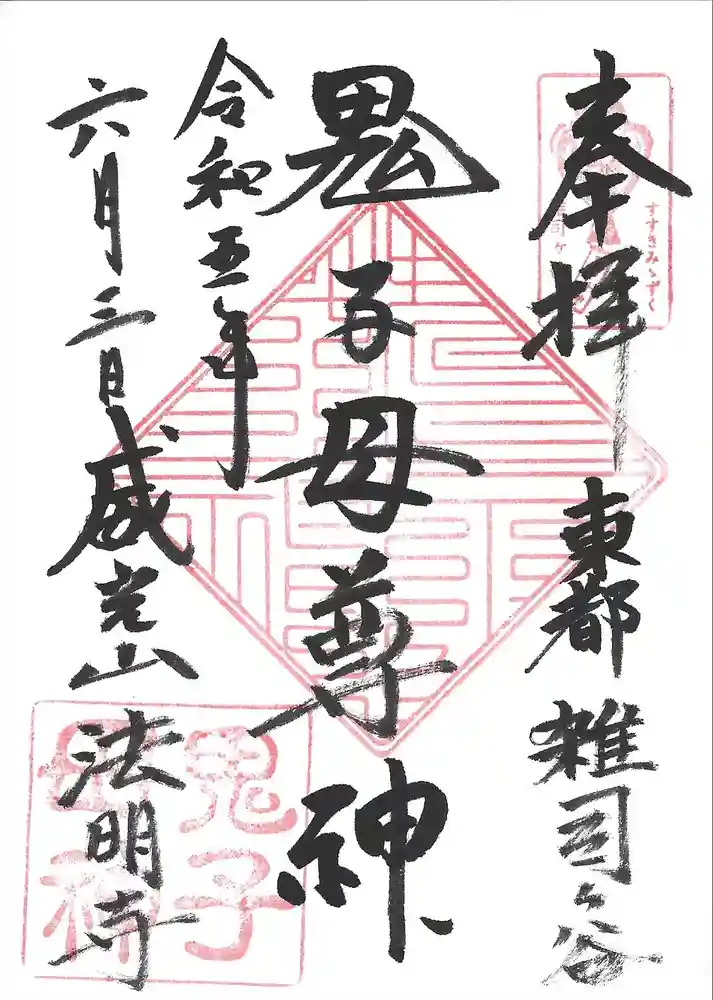 奉拝
東都 雑司ヶ谷
すすきみゝずく
司ヶ
鬼子母尊神
令和五年
六月三日
威光山 法明寺
鬼子
母神